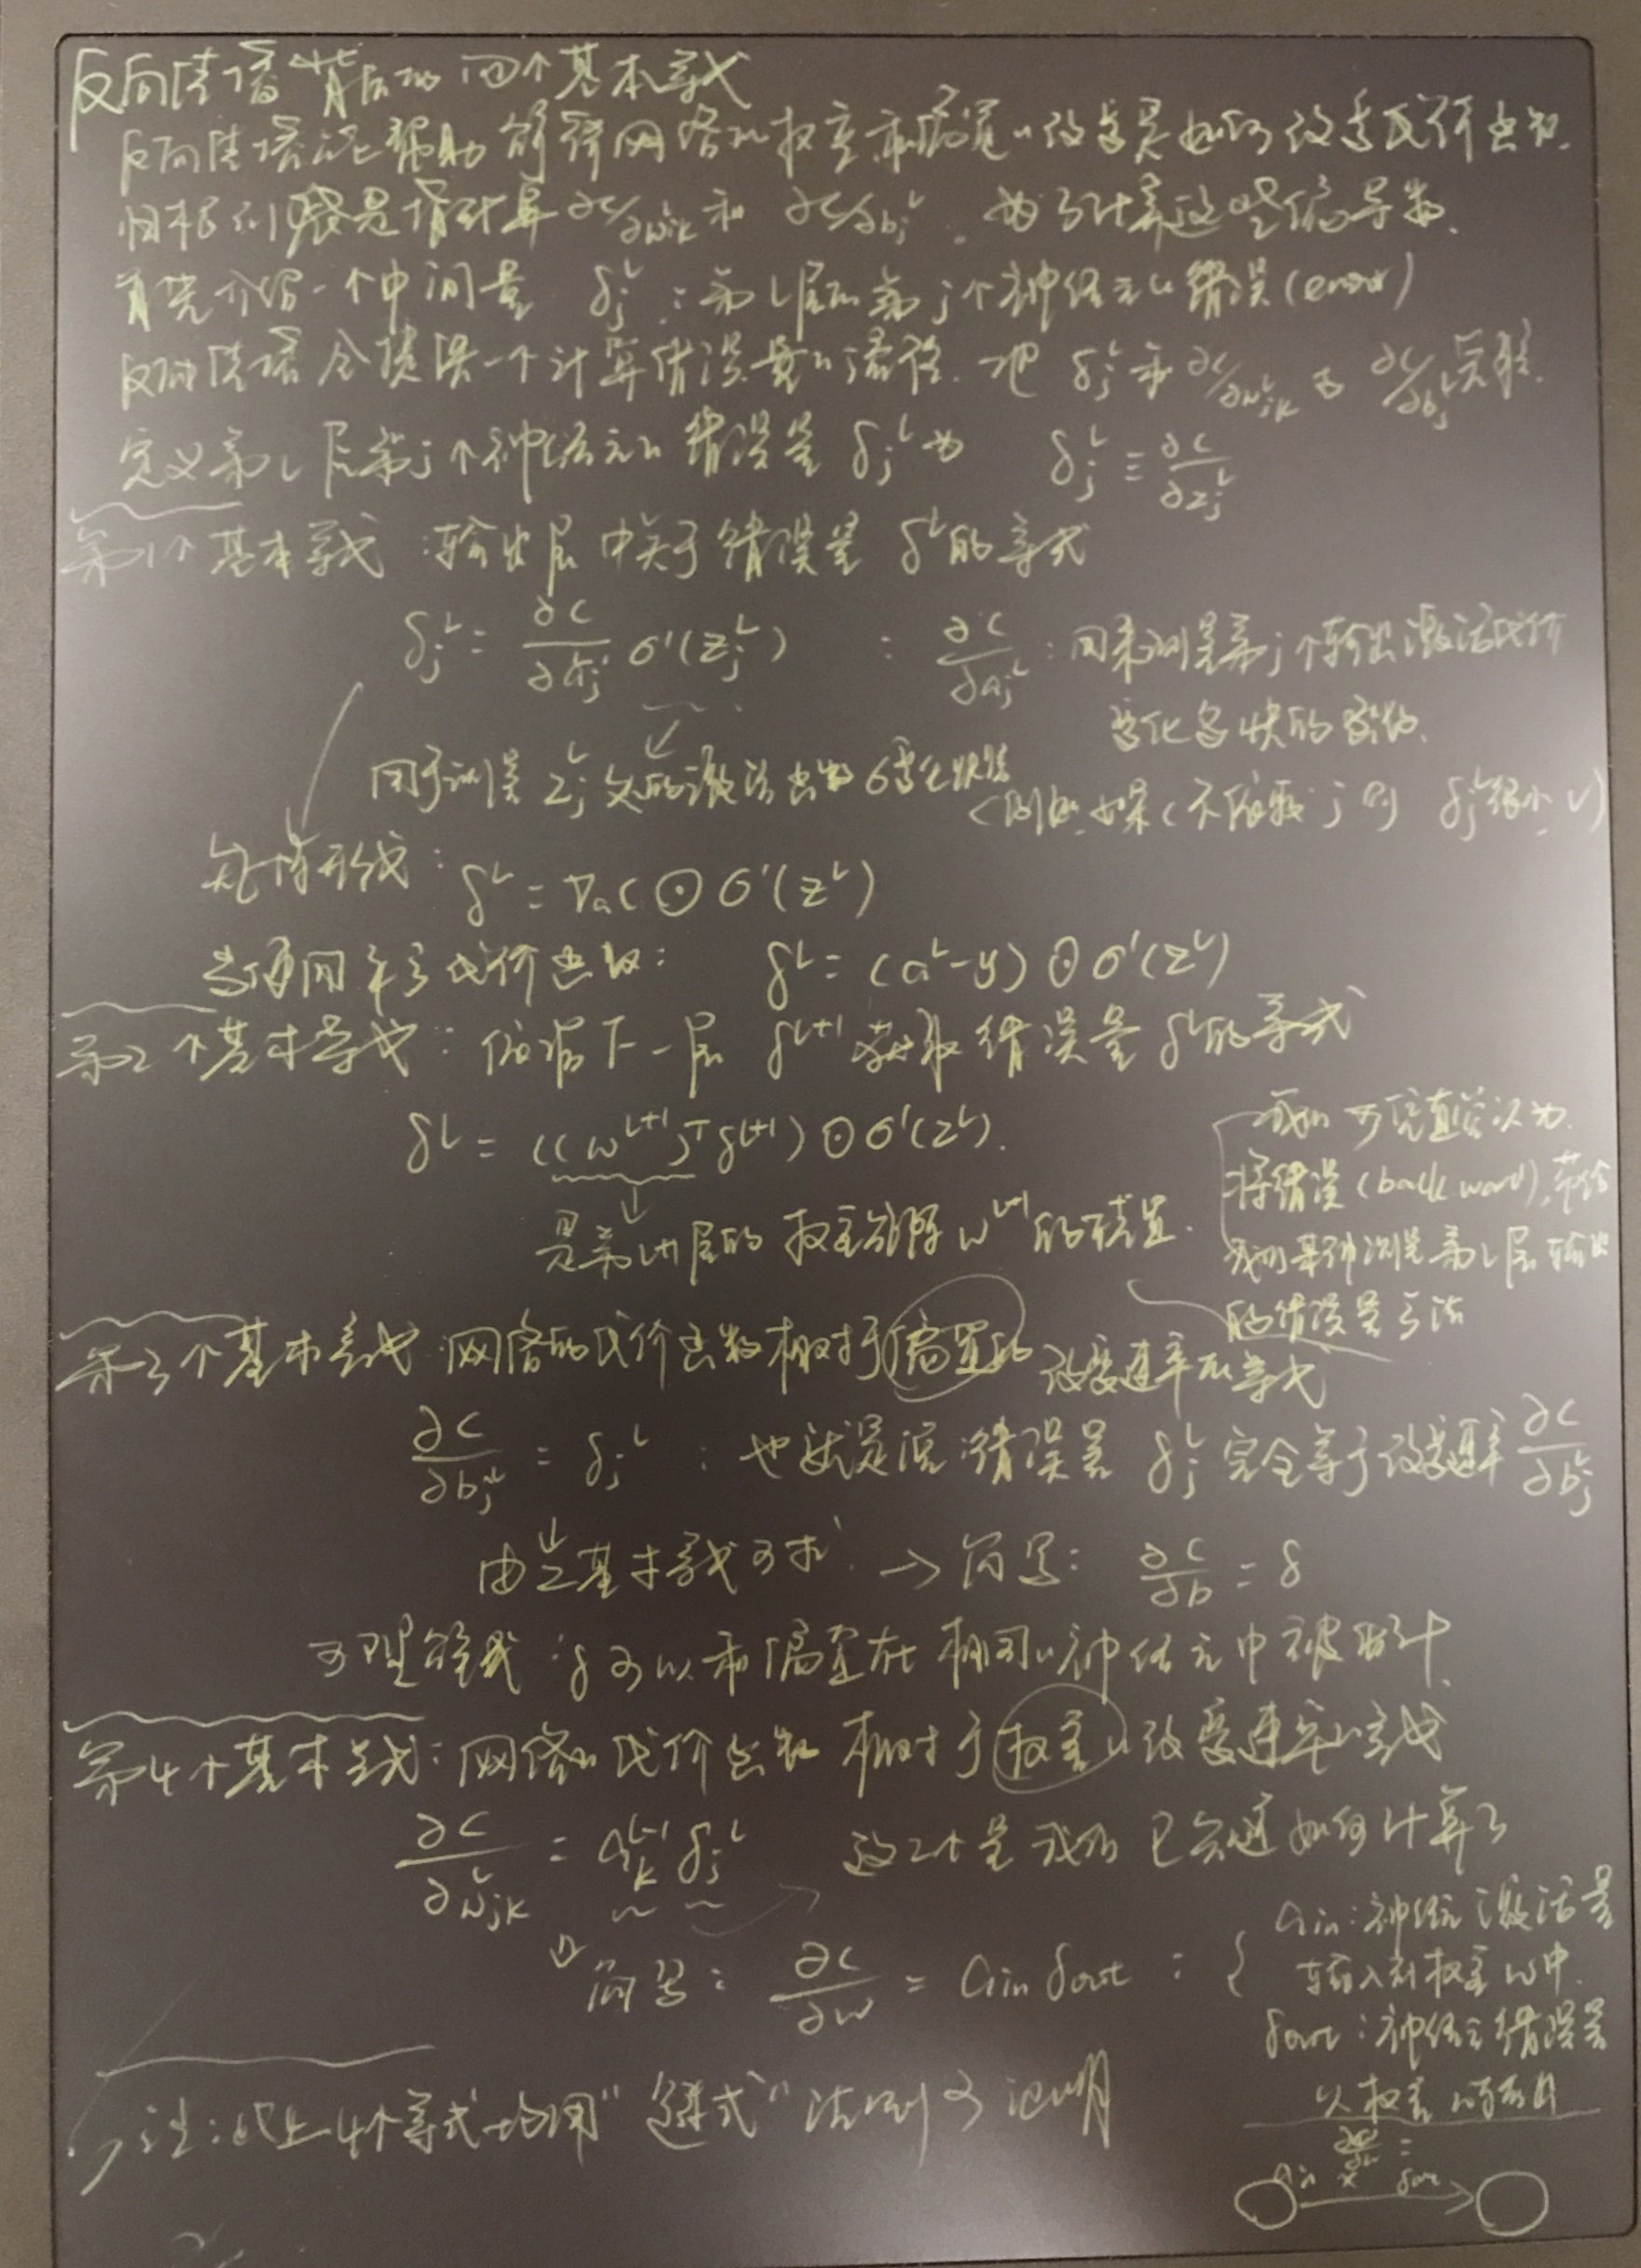 反向传播背后的四个基本等式
反向传播能帮助解释网络的权重和偏置的改变是如何改变代价函数.
归根到底是指计算 ∂C/∂w^l_jk 和 ∂C/∂b^l_j 。为了计算这些偏导数.
首先介绍一个中间量 δ^l_j : 第l层的第j个神经元的错误(error)
反向传播会提供一个计算错误量的途径. 把 δ^l_j 和 ∂C/∂w^l_jk 与 ∂C/∂b^l_j 关联.
定义第l层第j个神经元的错误量 δ^l_j 为 δ^l_j ≡ ∂C/∂z^l_j
第1个基本等式 : 输出层中关于错误量 δ^L的等式
δ^L_j = ∂C/∂a^L_j σ'(z^L_j) : ∂C/∂a^L_j : 用来测量第j个输出激活代价
变化多快的函数.
用于测量 z^L_j 处的激活函数 σ变化快慢
(例如. 如果C不依赖j 则 δ^L_j很小 ✓)
矩阵形式: δ^L = ∇aC ⊙ σ'(z^L)
当使用平方代价函数: δ^L = (a^L-y) ⊙ σ'(z^L)
第2个基本等式 : 依据下一层 δ^l+1 获取错误量 δ^l的等式
δ^l = ((w^l+1)^T δ^l+1) ⊙ σ'(z^l).
是第l+1层的权重矩阵 w^l+1 的转置.
我们可凭直觉认为.
将错误(backward), 带给
我们某种测量第l层输出
的错误量方法
第3个基本等式 网络的代价函数相对于偏置的改变速率的等式
∂C/∂b^l_j = δ^l_j : 也就是说 错误量 δ^l_j 完全等于改变速率 ∂C/∂b^l_j
由上2基本等式可求 → 简写: ∂C/∂b = δ
可理解成 : δ可以和偏置在相同的神经元中被估计.
第4个基本等式: 网络的代价函数 相对于权重的改变速率的等式
∂C/∂w^l_jk = a^l-1_k δ^l_j 这2个量我们已知道如何计算了
简写: ∂C/∂w = a_in δ_out : {
a_in : 神经元激活量
输入到权重w中.
δ_out : 神经元错误量
从权重w输出
注: 以上4个等式均用"链式"法则可证明
∂C/∂w =
a_in × δ_out